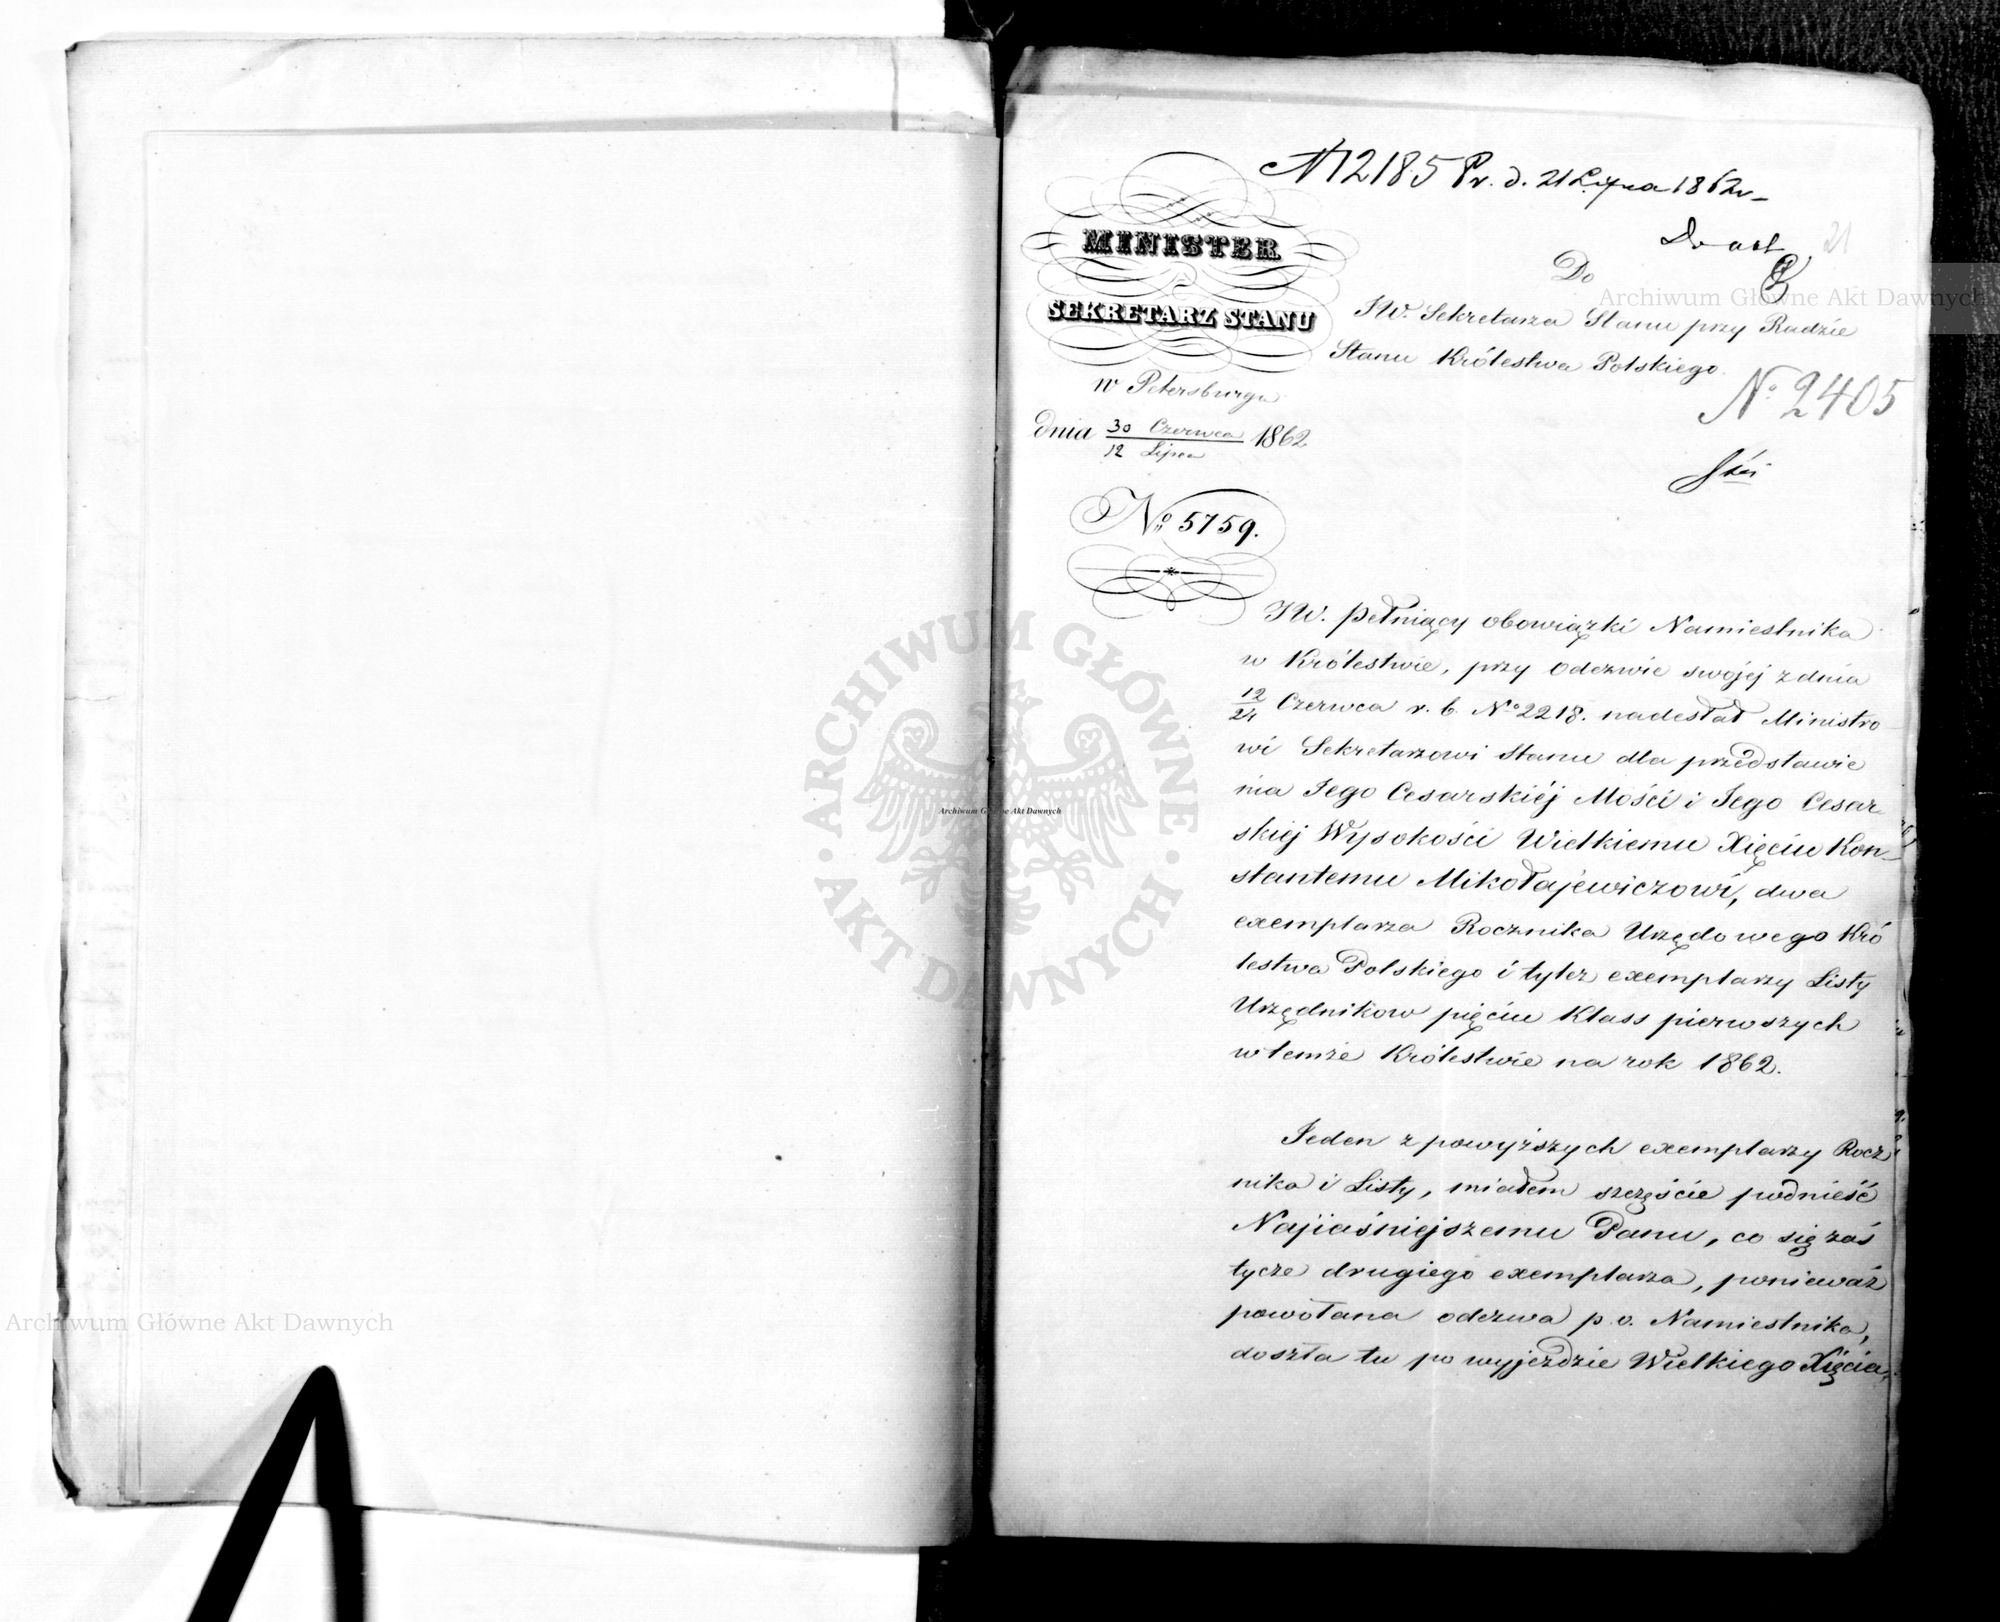 N 2185 Pr. d. 21 Lipca 1862 r.
Do akt
21
MINISTER
SEKRETARZ STANU
w Petersburgu
dnia 30 Czerwca / 12 Lipca 1862
No 5759.
Do
JW. Sekretarza Stanu przy Radzie
Stanu Królestwa Polskiego.
No 2405
JW. Pełniący obowiązki Namiestnika
w Królestwie, przy odezwie swojéj z dnia
12/24 Czerwca r. b. No 2218. nadesłał Ministro
wi Sekretarzowi Stanu dla przedstawie
nia Jego Cesarskiéj Mości i Jego Cesar
skiéj Wysokości Wielkiemu Xięciu Kon-
stantemu Mikołajewiczowi, dwa
exemplarza Rocznika Urzędowego Kró
lestwa Polskiego i tyleż exemplarzy Listy
Urzędników pięciu Klass pierwszych
w temże Królestwie na rok 1862.
Jeden z powyższych exemplarzy Rocz
nika i Listy, miałem szczęście podnieść
Najjaśniejszemu Panu, co się zaś
tycze drugiego exemplarza, ponieważ
powołana odezwa p. o. Namiestnika,
doszła tu po wyjeździe Wielkiego Xięcia,
ARCHIWUM GŁÓWNE AKT DAWNYCH
Archiwum Główne Akt Dawnych
Archiwum Główne Akt Dawnych
Archiwum Główne Akt Dawnych